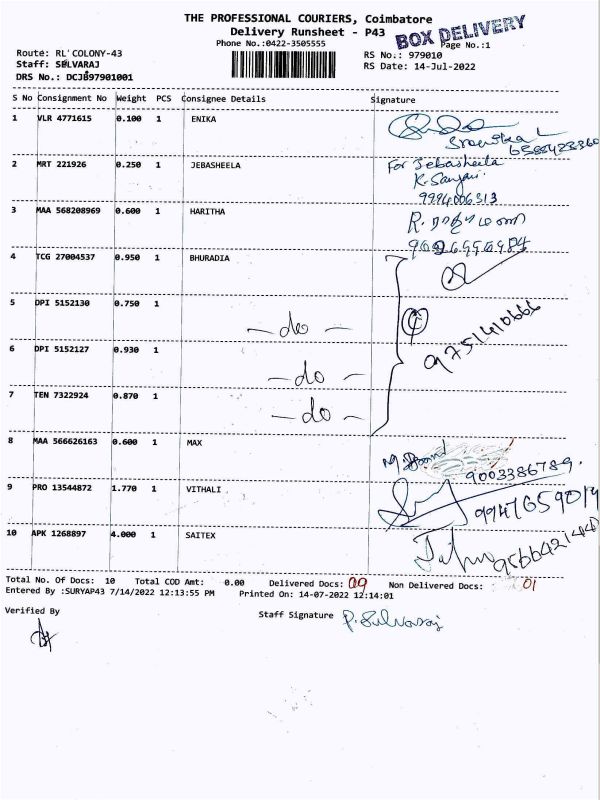 THE PROFESSIONAL COURIERS, Coimbatore
Delivery Runsheet - P43
BOX DELIVERY
Phone No.:0422-3505555
Page No.:1
Route: RL COLONY-43
RS No.: 979010
Staff: SELVARAJ
RS Date: 14-Jul-2022
DRS No.: DCJB97901001
S No Consignment No Weight PCS Consignee Details Signature
1 VLR 4771615 0.100 1 ENIKA
2 MRT 221926 0.250 1 JEBASHEELA For Jebasheela
9994006313
3 MAA 568208969 0.600 1 HARITHA
4 TCG 27004537 0.950 1 BHURADIA
5 DPI 5152130 0.750 1
— do —
9751410666
6 DPI 5152127 0.930 1
— do —
7 TEN 7322924 0.870 1
— do —
8 MAA 566626163 0.600 1 MAX
9003386789.
9 PRO 13544872 1.770 1 VITHALI
9947659019
10 APK 1268897 4.000 1 SAITEX
Total No. Of Docs: 10 Total COD Amt: 0.00 Delivered Docs: 09 Non Delivered Docs: 01
Entered By :SURYAP43 7/14/2022 12:13:55 PM Printed On: 14-07-2022 12:14:01
Verified By
Staff Signature P. Selvaraj